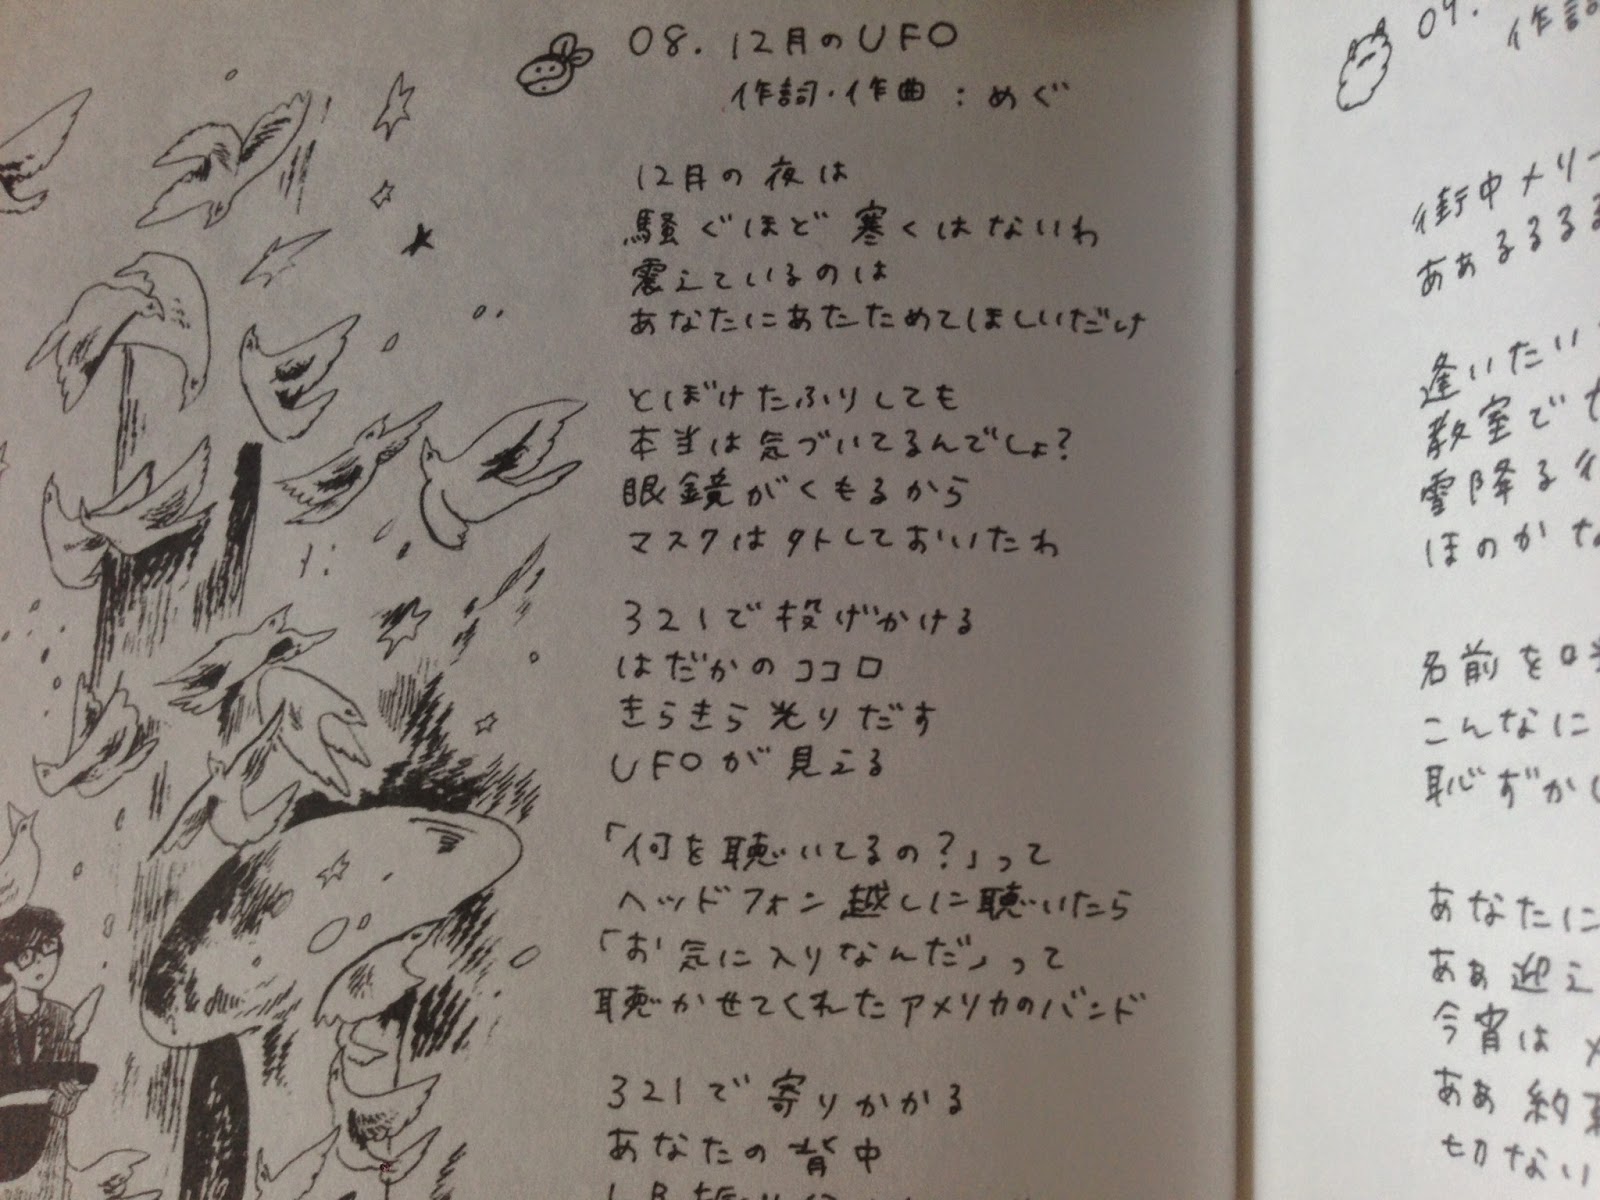 08. 12月のUFO
作詞・作曲：めぐ
12月の夜は
騒ぐほど 寒くはないわ
震えているのは
あなたにあたためてほしいだけ
とぼけたふりしても
本当は気づいてるんでしょ?
眼鏡がくもるから
マスクは外しておいたわ
321で投げかける
はだかのココロ
きらきら光りだす
UFOが見える
「何を聴いてるの?」って
ヘッドフォン越しに聴いたら
「お気に入りなんだ」って
聴かせてくれたアメリカのバンド
321で寄りかかる
あなたの背中
09.
作詞
街中メリー
ああるるる
逢いたい
教室で
雪降る
ほのかな
名前を
こんなに
恥ずかし
あなたに
ああ迎え
今宵は
ああ約束
切ない